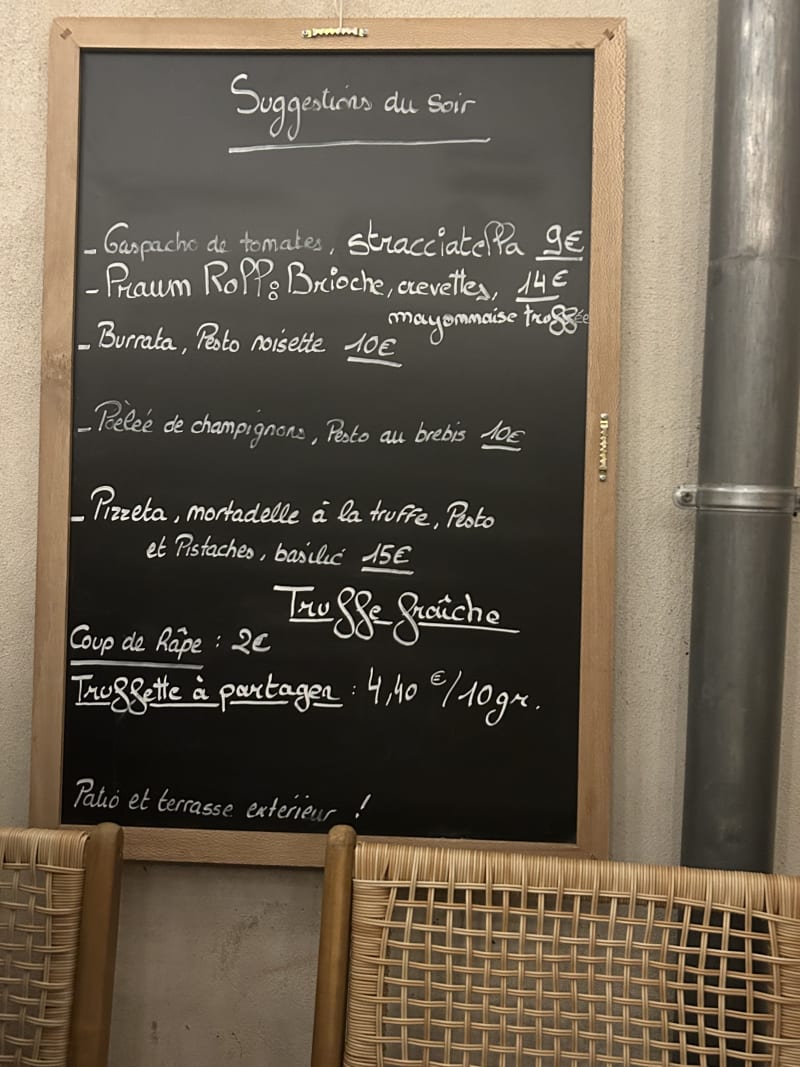 Suggestions du soir
- Gaspacho de tomates, stracciatella 9€
- Prawn Roll : Brioche, crevettes, 14€
mayonnaise truffée
- Burrata, Pesto noisette 10€
- Poêleé de champignons, Pesto au brebis 10€
- Pizzeta, mortadelle à la truffe, Pesto
et Pistaches, basilic 15€
Truffe fraîche
Coup de Râpe : 2€
Truffette à partager : 4,40 €/10gr.
Patio et terrasse extérieur !